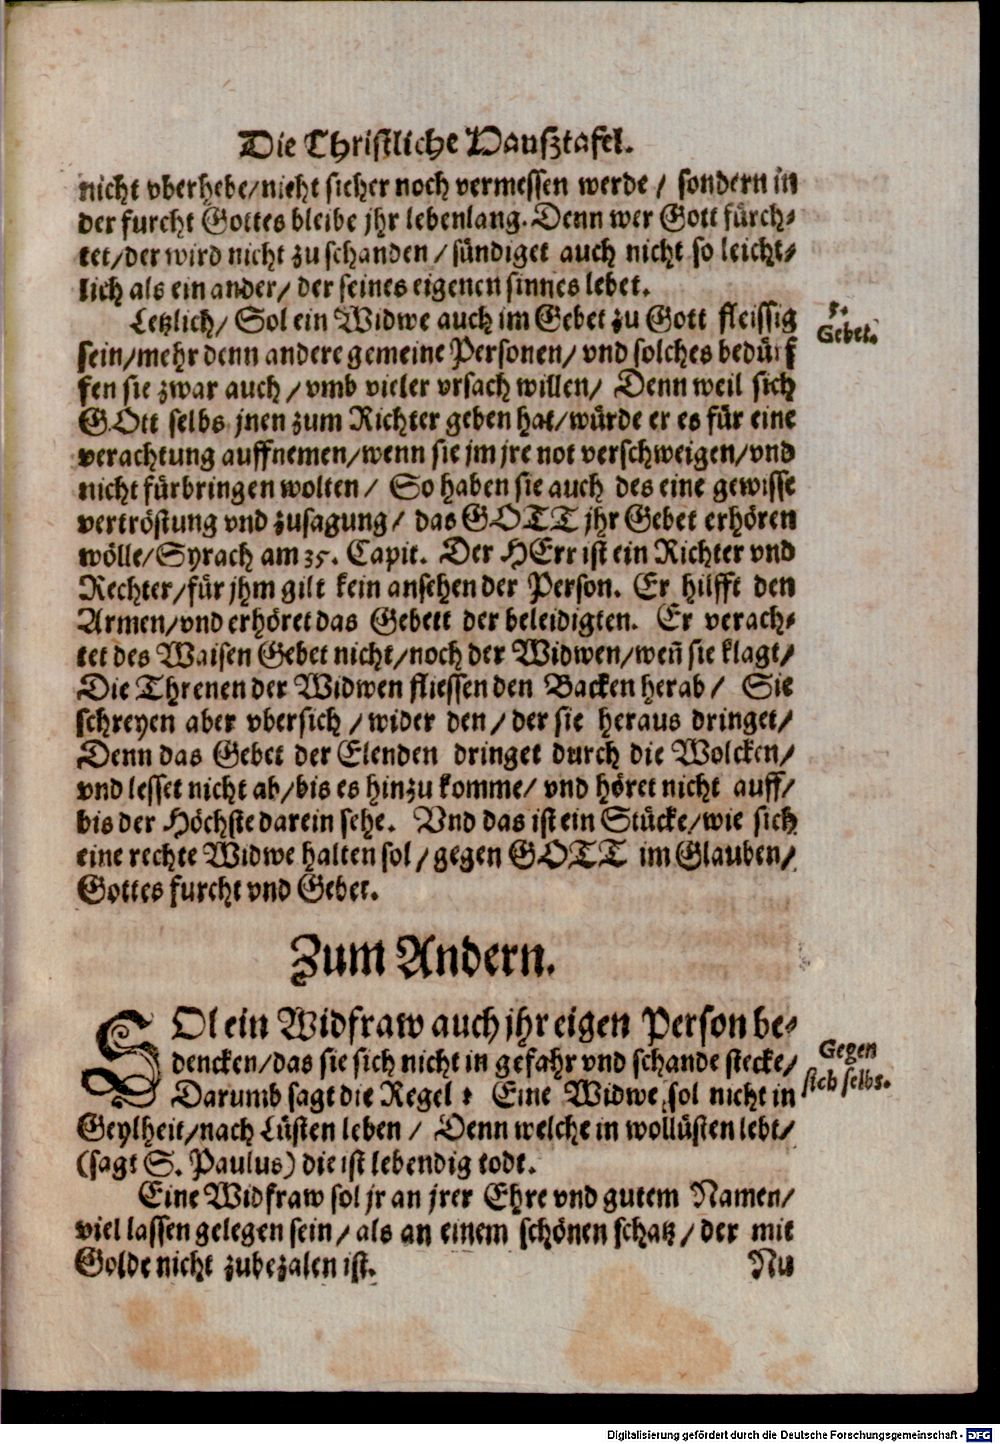 Die Christliche Haußtafel.
nicht vberhebe/nicht sicher noch vermessen werde / sondern in
der furcht Gottes bleibe jhr lebenlang. Denn wer Gott fürch-
tet/der wird nicht zu schanden / sündiget auch nicht so leicht-
lich als ein ander/ der seines eigenen sinnes lebet.
Letzlich/ Sol ein Widwe auch im Gebet zu Gott fleissig
5.
Gebet.
sein/mehr denn andere gemeine Personen/ vnd solches bedürf
fen sie zwar auch / vmb vieler vrsach willen/ Denn weil sich
GOtt selbs jnen zum Richter geben hat/würde er es für eine
verachtung auffnemen/wenn sie jm jre not verschweigen/vnd
nicht fürbringen wolten / So haben sie auch des eine gewisse
vertröstung vnd zusagung/ das GOTT jhr Gebet erhören
wölle/Syrach am 35. Capit. Der HErr ist ein Richter vnd
Rechter/für jhm gilt kein ansehen der Person. Er hilfft den
Armen/vnd erhöret das Gebett der beleidigten. Er verach-
tet des Waisen Gebet nicht/noch der Widwen/weñ sie klagt/
Die Threnen der Widwen fliessen den Backen herab / Sie
schreyen aber vbersich / wider den / der sie heraus dringet/
Denn das Gebet der Elenden dringet durch die Wolcken/
vnd lesset nicht ab/bis es hinzu komme/ vnd höret nicht auff/
bis der Höchste darein sehe. Vnd das ist ein Stücke/wie sich
eine rechte Widwe halten sol / gegen GOTT im Glauben/
Gottes furcht vnd Gebet.
Zum Andern.
SOl ein Widfraw auch jhr eigen Person be-
dencken/das sie sich nicht in gefahr vnd schande stecke/
Gegen
sich selbs.
Darumb sagt die Regel : Eine Widwe sol nicht in
Geylheit/nach Lüsten leben / Denn welche in wollüsten lebt/
(sagt S. Paulus) die ist lebendig todt.
Eine Widfraw sol jr an jrer Ehre vnd gutem Namen/
viel lassen gelegen sein / als an einem schönen schatz / der mit
Golde nicht zubezalen ist.
Nu
Digitalisierung gefördert durch die Deutsche Forschungsgemeinschaft - DFG